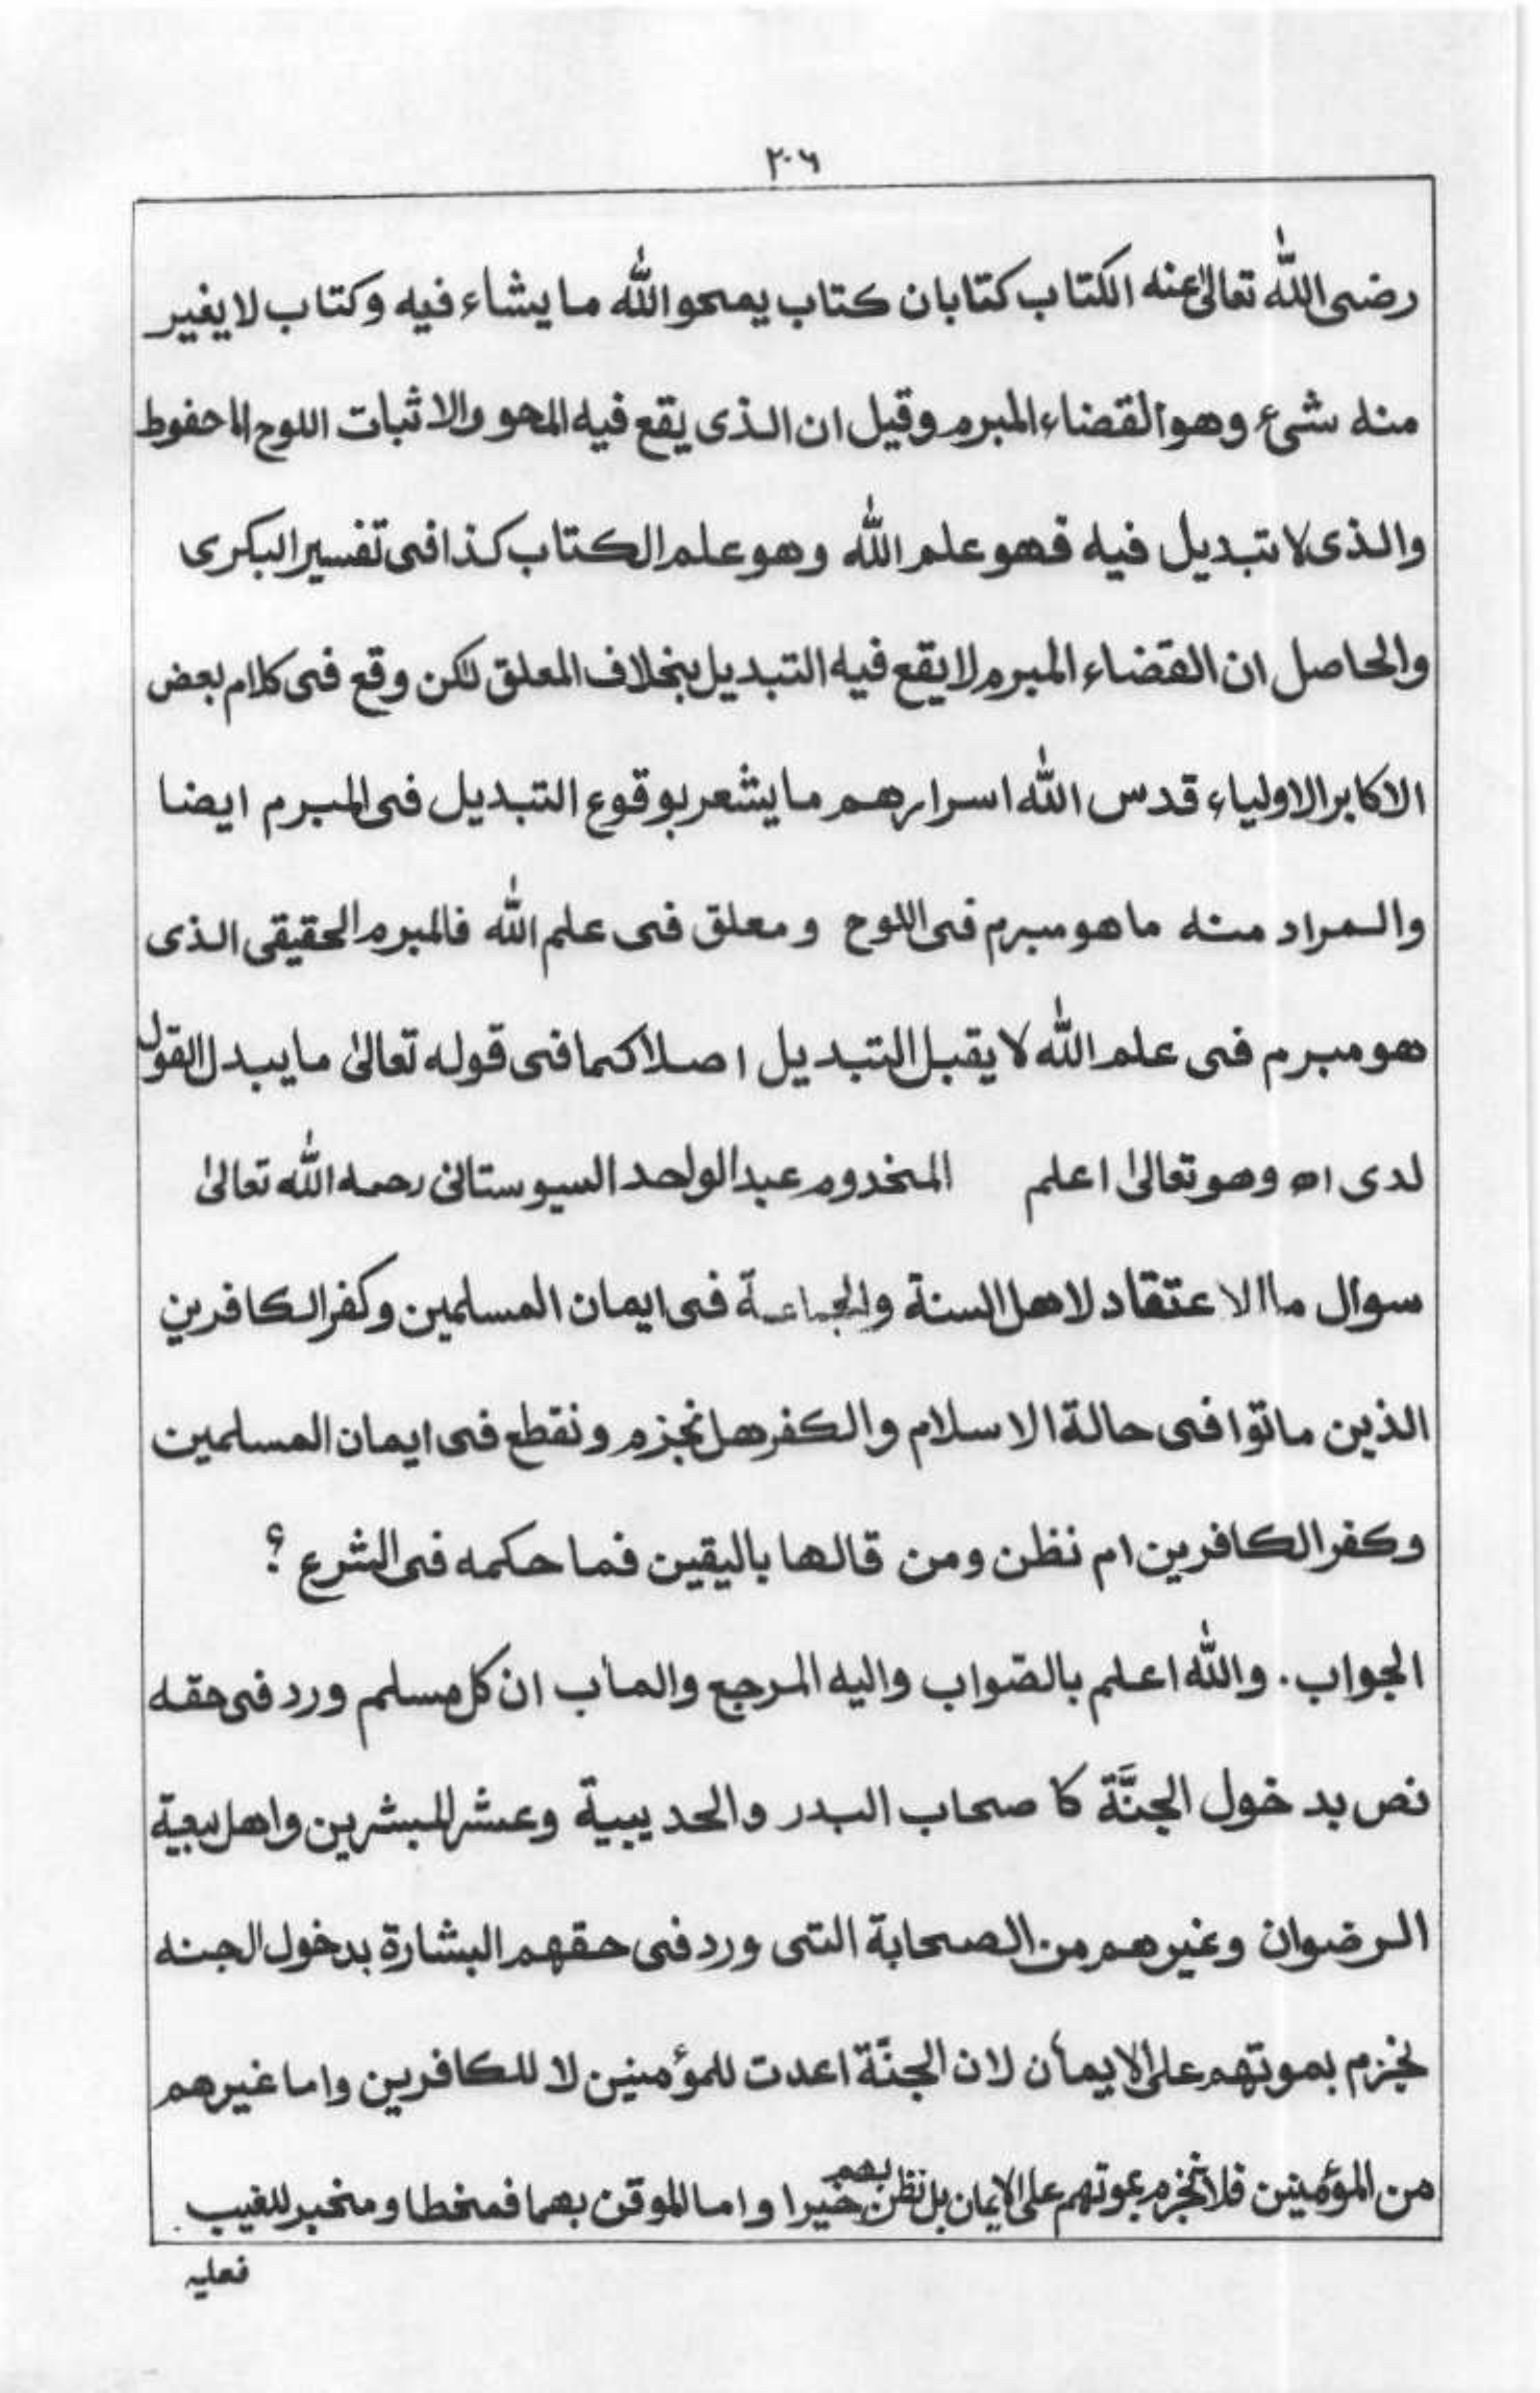 ٢٠٦
رضی اللّٰه تعالیٰ عنه الکتاب کتابان کتاب یمحو اللّٰه ما یشاء فیه وکتاب لا یغیر
منه شیء وهو القضاء المبرم وقیل ان الذی یقع فیه المحو والاثبات اللوح الماحفوط
والذی لا تبدیل فیه فهو علم اللّٰه وهو علم الکتاب کذا فی تفسیر البکری
والحاصل ان القضاء المبرم لا یقع فیه التبدیل بخلاف المعلق لکن وقع فی کلام بعض
الاکابر الاولیاء قدس اللّٰه اسرارهم ما یشعر بوقوع التبدیل فی المبرم ایضا
والمراد منه ما هو مبرم فی اللوح ومعلق فی علم اللّٰه فالمبرم الحقیقی الذی
هو مبرم فی علم اللّٰه لا یقبل التبدیل اصلا کما فی قوله تعالیٰ ما یبدل القول
لدی اه وهو تعالیٰ اعلم المخدوم عبد الواحد السیوستانی رحمه اللّٰه تعالیٰ
سوال ما الاعتقاد لاهل السنة والجماعة فی ایمان المسلمین وکفر الکافرین
الذین ماتوا فی حالة الاسلام والکفر هل نجزم ونقطع فی ایمان المسلمین
وکفر الکافرین ام نظن ومن قالها بالیقین فما حکمه فی الشرع ؟
الجواب. واللّٰه اعلم بالصّواب والیه المرجع والمأب ان کل مسلم ورد فی حقه
نص بدخول الجنَّة کا صحاب البدر والحدیبیة وعشر المبشرین واهل بیعیة
الرضوان وغیرهم من الصحابة التی ورد فی حقهم البشارة بدخول الجنه
نجزم بموتهم علی الایمان لان الجنّة اعدت للمؤمنین لا للکافرین واما غیرهم
من المؤمنین فلا نجزم بموتهم علی الایمان بل نظن بهم خیرا واما الموقن بهما فمخطا ومخبر للغیب
فعلیه